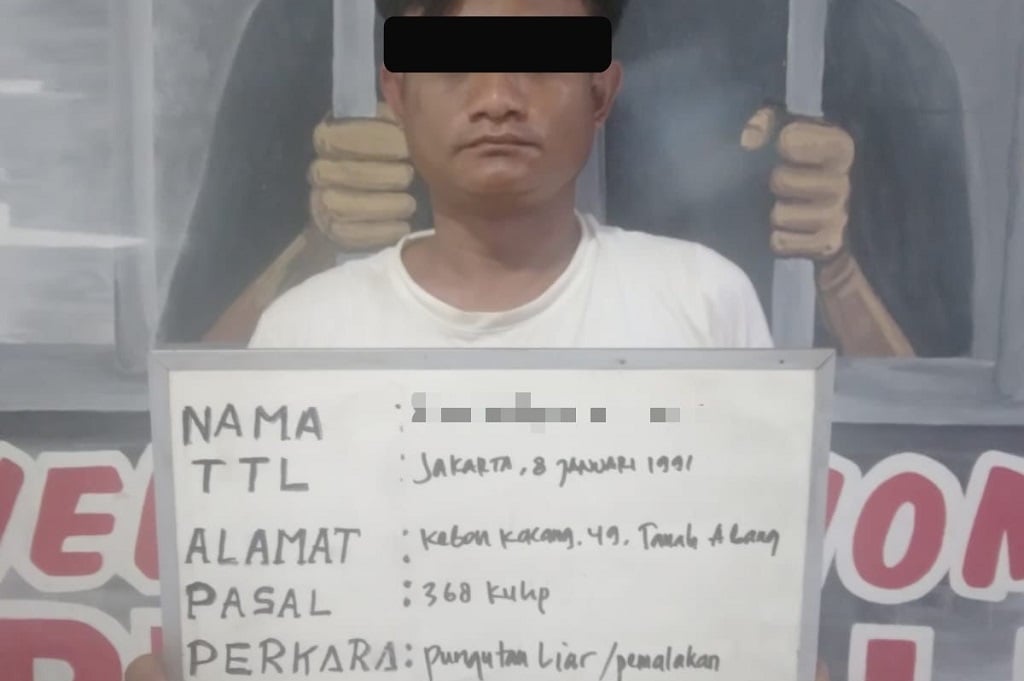 NAMA :
TTL : JAKARTA, 8 JANUARI 1991
ALAMAT : Kebon Kacang. 49. Tanah Abang
PASAL : 368 KUHP
PERKARA : pungutan Liar /pemalakan